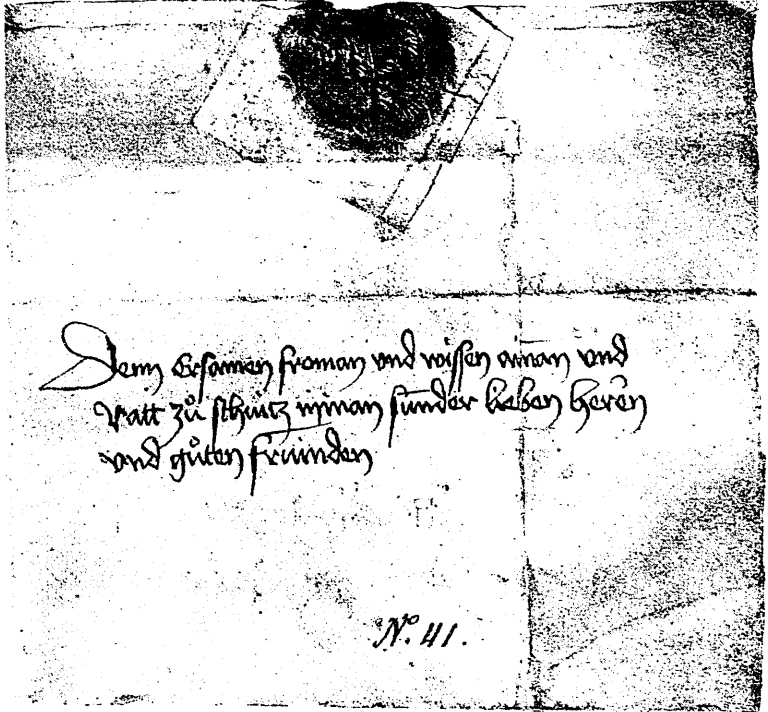 Denn Ersamen froman vnd wissen aman vnd
Ratt zů schwitz minan sunder lieben heren
vnd gůten fruinden
No. 41.